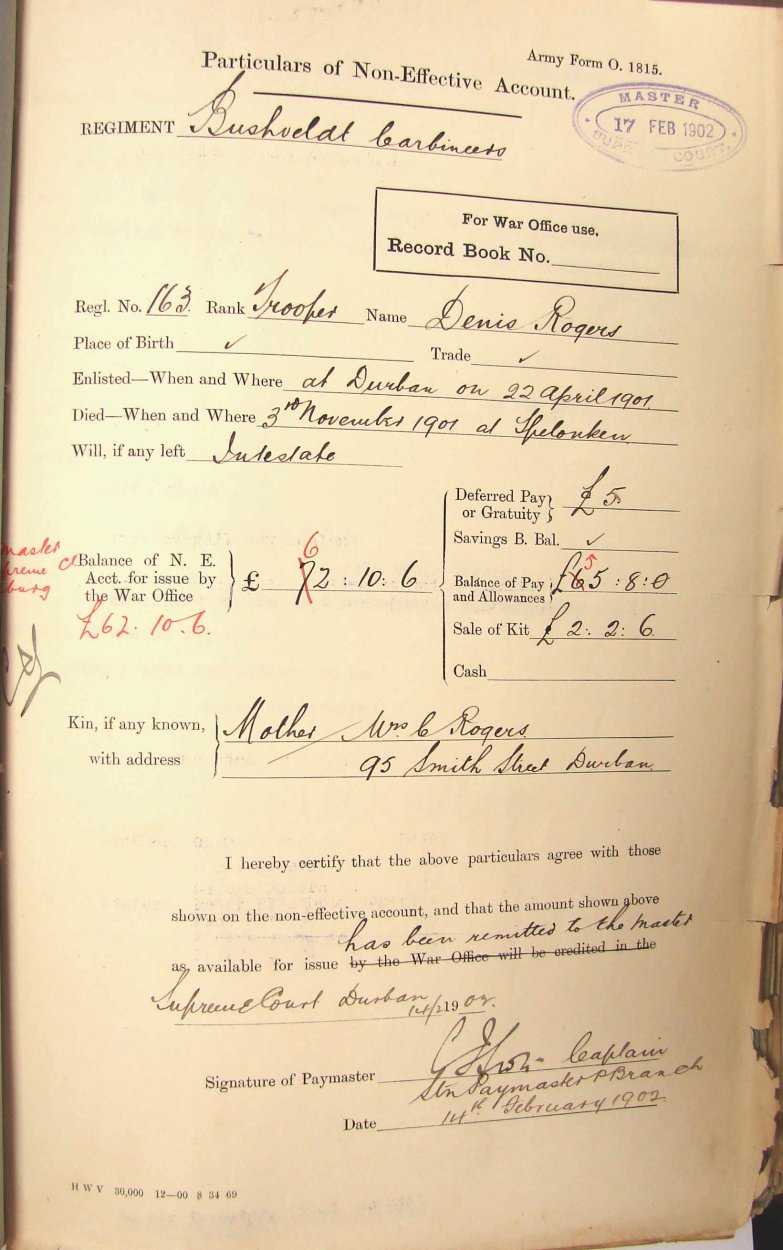 Army Form O. 1815.
Particulars of Non-Effective Account.
MASTER
17 FEB 1902
SUPREME COURT.
REGIMENT Bushveldt Carbineers
For War Office use,
Record Book No.
Regl. No. 163 Rank Trooper Name Denis Rogers
Place of Birth ✓ Trade ✓
Enlisted—When and Where at Durban on 22 April 1901
Died—When and Where 3rd November 1901 at Spelonken
Will, if any left Intestate
Deferred Pay or Gratuity } £5
Savings B. Bal. ✓
Master
Supreme Ct
burg
Balance of N. E.
Acct. for issue by
the War Office } £ 72 : 10 : 6
6
£62. 10. 6.
Balance of Pay
and Allowances } £65 : 8 : 0
5
Sale of Kit £ 2 : 2 : 6
Cash
Kin, if any known,
with address
Mother Mrs C Rogers
95 Smith Street Durban
I hereby certify that the above particulars agree with those
shown on the non-effective account, and that the amount shown above
has been remitted to the Master
as available for issue by the War Office will be credited in the
Supreme Court Durban 14/2 1902.
Signature of Paymaster Captain
Stn Paymaster P Branch
Date 14th February 1902
H W V 30,000 12—00 8 34 69